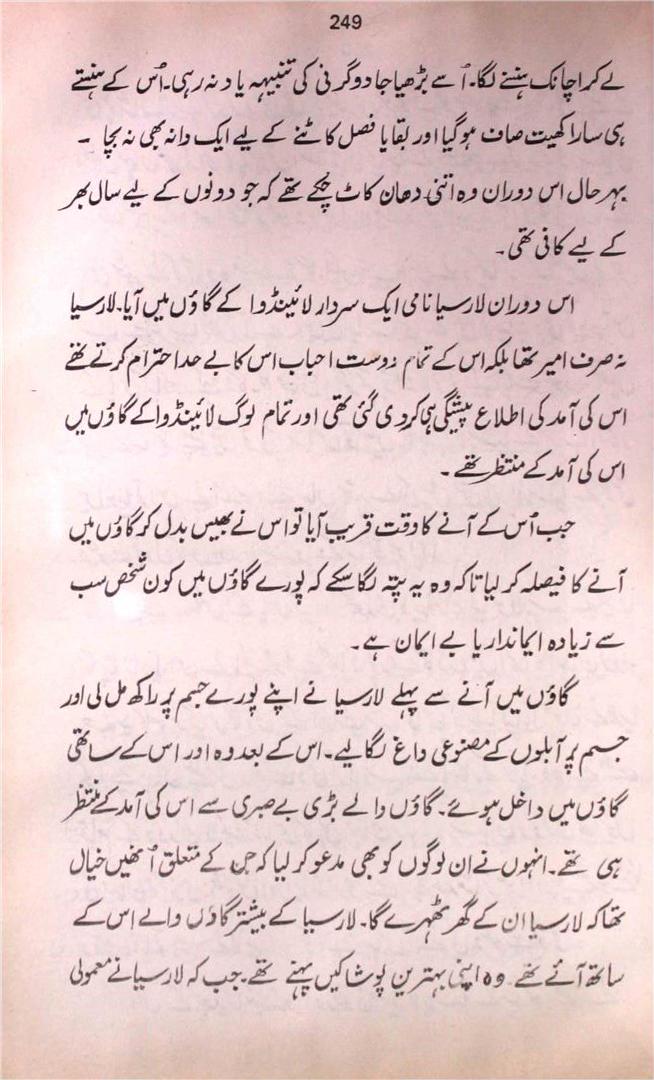 249
لے کر اچانک ہنسنے لگا۔ اُسے بڑھیا جادوگرنی کی تنبیہہ یاد نہ رہی۔ اُس کے ہنستے
ہی سارا کھیت صاف ہو گیا اور بقایا فصل کاٹنے کے لیے ایک دانہ بھی نہ بچا ۔
بہر حال اس دوران وہ اتنی دھان کاٹ چکے تھے کہ جو دونوں کے لیے سال بھر
کے لیے کافی تھی۔
اس دوران لارسیا نامی ایک سردار لائینڈوا کے گاؤں میں آیا۔ لارسیا
نہ صرف امیر تھا بلکہ اس کے تمام دوست احباب اس کا بے حد احترام کرتے تھے
اس کی آمد کی اطلاع پیشگی ہی کر دی گئی تھی اور تمام لوگ لائینڈوا کے گاؤں میں
اس کی آمد کے منتظر تھے ۔
جب اُس کے آنے کا وقت قریب آیا تو اس نے بھیس بدل کر گاؤں میں
آنے کا فیصلہ کر لیا تاکہ وہ یہ پتہ لگا سکے کہ پورے گاؤں میں کون شخص سب
سے زیادہ ایماندار یا بے ایمان ہے۔
گاؤں میں آنے سے پہلے لارسیا نے اپنے پورے جسم پر راکھ مل لی اور
جسم پر آبلوں کے مصنوعی داغ لگا لیے۔ اس کے بعد وہ اور اس کے ساتھی
گاؤں میں داخل ہوئے۔ گاؤں والے بڑی بے صبری سے اس کی آمد کے منتظر
ہی تھے۔ انہوں نے ان لوگوں کو بھی مدعو کر لیا کہ جن کے متعلق اُنھیں خیال
تھا کہ لارسیا ان کے گھر ٹھہرے گا۔ لارسیا کے بیشتر گاؤں والے اس کے
ساتھ آئے تھے۔ وہ اپنی بہترین پوشاکیں پہنے تھے۔ جب کہ لارسیا نے معمولی